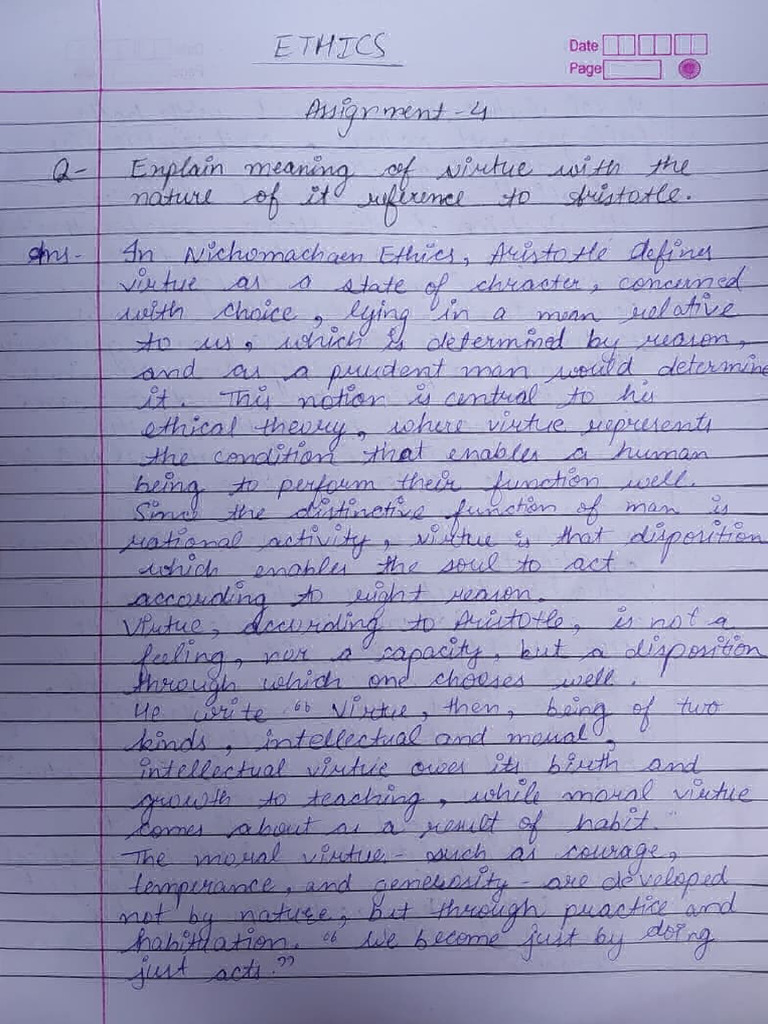 ETHICS
Date
Page
Assignment - 4
Q- Explain meaning of virtue with the
nature of it reference to Aristotle.
Ans- In Nichomachaen Ethics, Aristotle defines
virtue as a state of chracter, concerned
with choice, lying in a mean relative
to us, which is determined by reason,
and as a prudent man would determine
it. This notion is central to his
ethical theory, where virtue represents
the condition that enables a human
being to perform their function well.
Since the distinctive function of man is
rational activity, virtue is that disposition
which enables the soul to act
according to right reason.
Virtue, according to Aristotle, is not a
feeling, nor a capacity, but a disposition
through which one chooses well.
He write "Virtue, then, being of two
kinds, intellectual and moral,
intellectual virtue owes its birth and
growth to teaching, while moral virtue
comes about as a result of habit."
The moral virtue - such as courage,
temperance, and generosity - are developed
not by nature, but through practice and
habituation. "We become just by doing
just acts."